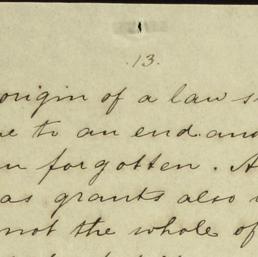 .13.
origin of a law s
e to an end and
n forgotten. A
as grants also
not the whole of